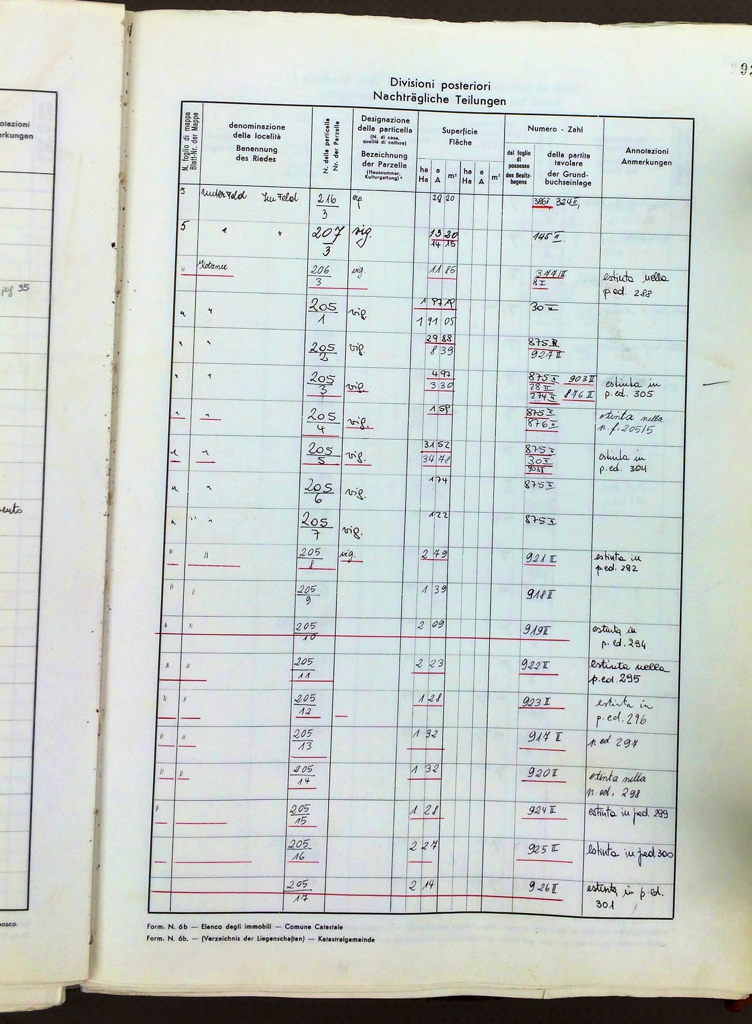 Divisioni posteriori
Nachträgliche Teilungen
N. foglio di mappa
Blatt-Nr. der Mappe
denominazione
della località
Benennung
des Riedes
N. della particella
Nr. der Parzelle
Designazione
della particella
(N. di casa,
qualità di coltura)
Bezeichnung
der Parzelle
(Hausnummer,
Kulturgattung)
Superficie
Fläche
ha a m² ha a m²
Ha A Ha A
Numero - Zahl
del foglio
di
possesso
des Besitz-
bogens
della partita
tavolare
der Grund-
buchseinlage
Annotazioni
Anmerkungen
5 Unterfeld Im Feld 216/3 29 20 324 II
5 " " 207/3 vig. 13 20 145 II
14 15
" 206/3 vig. 11 85 8 I estinta nella
p.ed. 288
" " 205/1 vig. 30 II
1 91 05
" " 205/2 vig. 29 88 875 II
8 39 927 II
" " 205/3 vig. 4 97 875 I 903 II estinta in
3 30 28 II 816 II p.ed. 305
274 I
" " 205/4 vig. 1 59 875 I estinta nella
876 I p.f. 205/5
" " 205/5 vig. 31 52 875 I estinta in
34 78 30 I p.ed. 304
903 II
" " 205/6 vig. 1 74 875 I
" " 205/7 vig. 1 22 875 I
" " 205/8 vig. 2 79 921 II estinta in
p.ed. 292
" " 205/9 1 39 918 II
" " 205/10 2 09 919 II estinta in
p.ed. 294
" " 205/11 2 23 922 II estinta nella
p.ed. 295
" " 205/12 1 28 923 II estinta in
p.ed. 296
" " 205/13 1 32 917 II p.ed 297
" " 205/14 1 32 920 II estinta nella
p.ed. 298
" 205/15 1 28 924 II estinta in p.ed 299
" 205/16 2 27 925 II estinta in p.ed 300
205/17 2 14 926 II estinta in p.ed.
301
Form. N. 6b — Elenco degli immobili — Comune Catastale
Form. N. 6b. — (Verzeichnis der Liegenschaften) — Katastralgemeinde